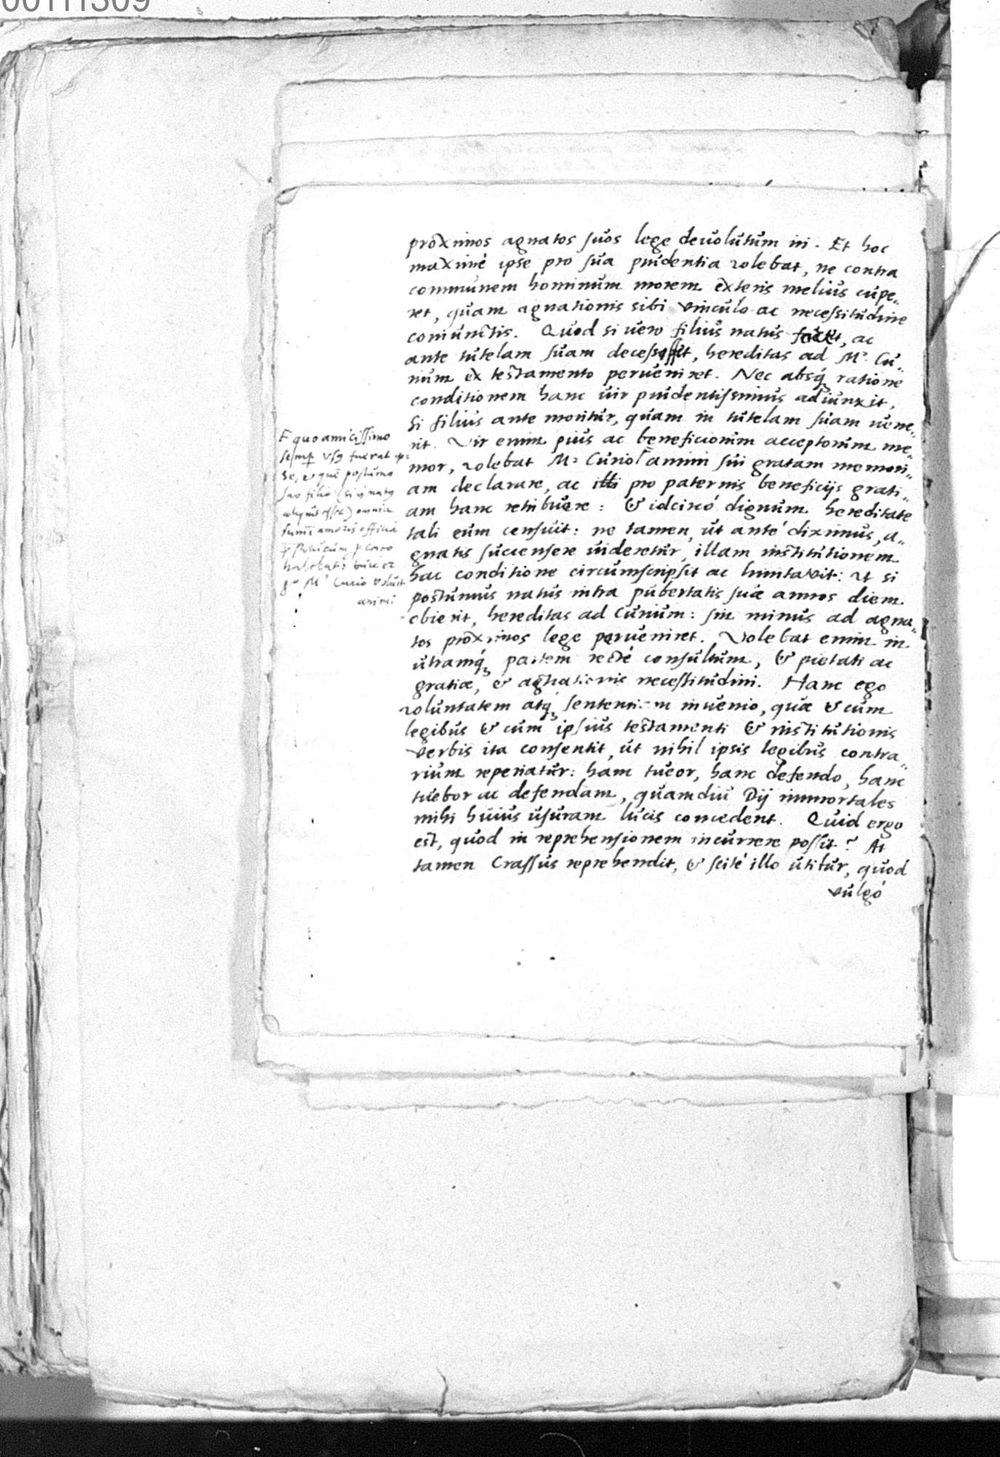 00111309
próximos agnatos suos lege deuolutum iri. Et hoc
maximè ipse pro sua prudentia volebat, ne contra
communem hominum morem exteris melius cupe„
ret, quam agnationis sibi vinculo ac necessitudine
coniunctis. Quod si vero filius natus ac
ante tutelam suam decessisset, hereditas ad M. Cu„
rium ex testamento perueniret. Nec absq́ ratione
conditionem hanc uir prudentissimus adiunxit,
Si filius ante moritur, quam in tutelam suam uene„
rit. Vir enim pius ac beneficiorum acceptorum me„
mor, volebat M. Curio animi sui gratam memori„
am declarare, ac illi pro paternis beneficijs grati„
am hanc retribuere: & idcircó dignum hereditate
tali eum censuit: ne tamen, ut anté diximus, a„
gnatis succensere uideretur, illam institutionem
hac conditione circumscripsit ac limitauit: ut si
postumus natus intra pubertatis suæ annos diem
obierit, hereditas ad Curium: sin minus ad agna„
tos próximos lege perueniret. Volebat enim in
utramq́ partem rectè consultum, & pietati ac
gratiæ, & agnationis necessitudini. Hanc ego
voluntatem atq́ sententiam inuenio, quæ & cum
legibus & cum ipsius testamenti & institutionis
verbis ita consentit, ut nihil ipsis legibus contra„
rium reperiatur: hanc tueor, hanc defendo, hanc
tuebor ac defendam, quamdiu Dij immortales
mihi huius usuram lucis concedent. Quid ergo
est, quod in reprehensionem incurrere possit? At
tamen Crassus reprehendit, & scitè illo utitur, quod
vulgó
quo amicissimo
semp usq fuerat
se, & qui postumo
suo filio (si is natus
omnia
amoris officia
huic er
go M. Curio voluit
animi